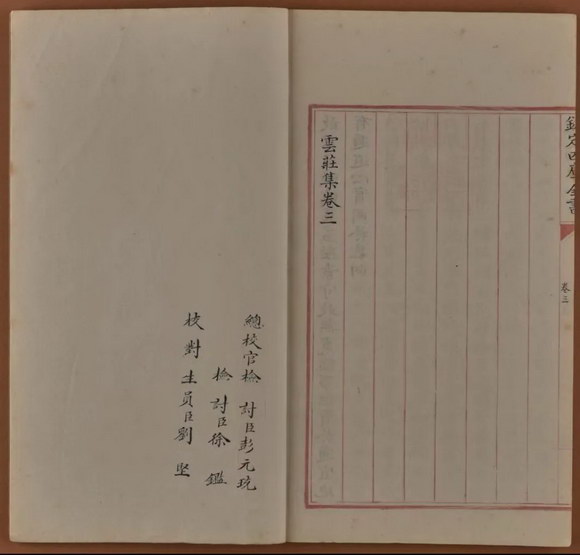 欽定四庫全書
卷三
雲莊集卷三
總校官檢討臣彭元珫
檢討臣徐鑑
校對生員臣劉堅